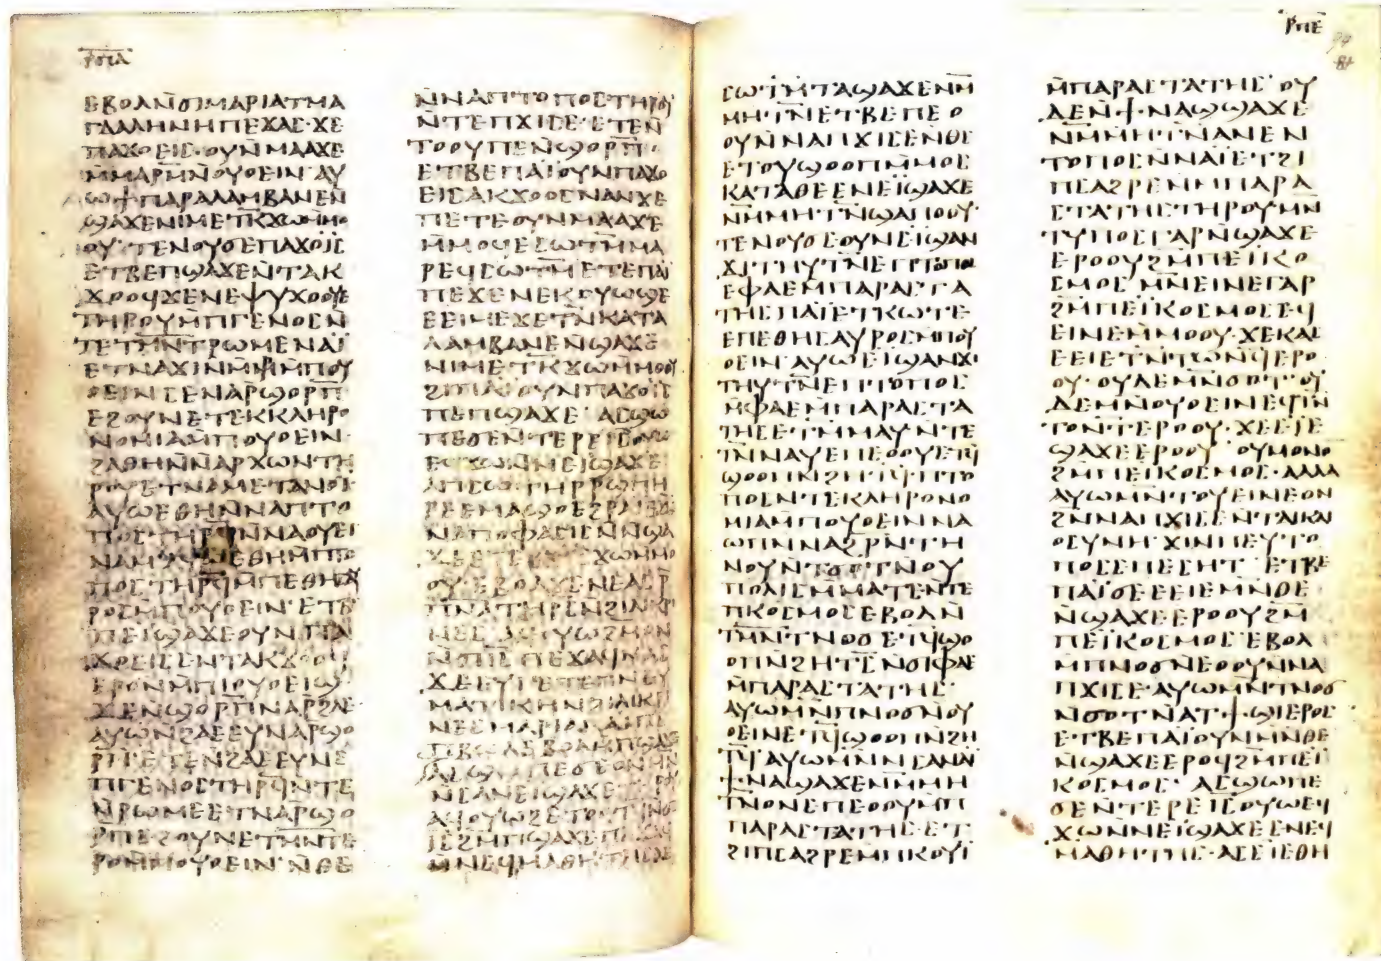 ⲣ̅ⲡ̅ⲇ̅
ⲉⲃⲟⲗⲛ̄ϭⲓⲙⲁⲣⲓⲁⲧⲙⲁ
ⲅⲇⲁⲗⲏⲛⲏⲡⲉϫⲁⲥ·ϫⲉ
ⲡⲁϫⲟⲉⲓⲥ·ⲟⲩⲛ̄ⲙⲁⲁϫⲉ
ⲙ̄ⲡⲁⲣⲙ̄ⲛ̄ⲟⲩⲟⲉⲓⲛ·ⲁⲩ
ⲱϯⲡⲁⲣⲁⲗⲁⲙⲃⲁⲛⲉⲛ̄
ϣⲁϫⲉⲛⲓⲙⲉⲧⲕ̄ϫⲱⲙ̄ⲙⲟ
ⲟⲩ·ⲧⲉⲛⲟⲩϭⲉⲡⲁϫⲟⲓ̈ⲥ
ⲉⲧⲃⲉⲡϣⲁϫⲉⲛ̄ⲧⲁⲕ
ϫⲟⲟϥϫⲉⲛⲉⲯⲩⲭⲟⲟⲩⲉ
ⲧⲏⲣⲟⲩⲙ̄ⲡⲅⲉⲛⲟⲥⲛ̄
ⲧⲉⲧⲙⲛ̄ⲧⲣⲱⲙⲉⲛⲁⲓ̈
ⲉⲧⲛⲁϫⲓⲛ̄ⲙⲙ̄ⲡⲟⲩ
ⲟⲉⲓⲛⲥⲉⲛⲁⲣ̄ϣⲟⲣⲡ̄
ⲉϩⲟⲩⲛⲉⲧⲉⲕⲕⲗⲏⲣⲟ
ⲛⲟⲙⲓⲁⲙ̄ⲡⲟⲩⲟⲉⲓⲛ·
ϩⲁⲑⲏⲛ̄ⲛⲁⲣⲭⲱⲛⲧⲏ
ⲣⲟⲩⲉⲧⲛⲁⲙⲉⲧⲁⲛⲟⲓ̈
ⲁⲩⲱⲉⲑⲏⲛ̄ⲛⲁⲡⲧⲟ
ⲡⲟⲥⲧⲏⲣϥ̄ⲛ̄ⲛⲁⲟⲩⲉⲓ
ⲛⲁⲙ·ⲁⲩⲱⲉⲑⲏⲙ̄ⲡⲧⲟ
ⲡⲟⲥⲧⲏⲣϥ̄ⲙ̄ⲡⲉⲑⲏⲥⲁⲩ
ⲣⲟⲥⲙ̄ⲡⲟⲩⲟⲉⲓⲛ·ⲉⲧⲃ
ⲡⲉⲓ̈ϣⲁϫⲉⲟⲩⲛⲡⲁ
ϫⲟⲉⲓⲥⲉⲛⲧⲁⲕϫⲟⲟϥ
ⲉⲣⲟⲛⲙ̄ⲡⲓⲟⲩⲟⲉⲓϣ
ϫⲉⲛ̄ϣⲟⲣⲡ̄ⲛⲁⲣ̄ϩⲁⲉ·
ⲁⲩⲱⲛ̄ϩⲁⲉⲉⲩⲛⲁⲣ̄ϣⲟ
ⲣⲡ̄·ⲉⲧⲉⲛ̄ϩⲁⲉⲉⲩⲛⲉ
ⲡⲅⲉⲛⲟⲥⲧⲏⲣϥ̄ⲛ̄ⲧⲉ
ⲛ̄ⲣⲱⲙⲉⲉⲧⲛⲁⲣ̄ϣⲟ
ⲣⲡ̄ⲉϩⲟⲩⲛⲉⲧⲙⲛ̄ⲧⲉ
ⲣⲟⲙ̄ⲡⲟⲩⲟⲉⲓⲛ·ⲛ̄ⲑⲉ
ⲛ̄ⲛⲁⲡⲧⲟⲡⲟⲥⲧⲏⲣϥ̄
ⲛ̄ⲧⲉⲡϫⲓⲥⲉ·ⲉⲧⲉⲛ̄
ⲧⲟⲟⲩⲡⲉⲛ̄ϣⲟⲣⲡ̄·
ⲉⲧⲃⲉⲡⲁⲓ̈ⲟⲩⲛⲡⲁϫⲟ
ⲉⲓⲥⲁⲕϫⲟⲟⲥⲛⲁⲛϫⲉ
ⲡⲉⲧⲉⲟⲩⲛ̄ⲙⲁⲁϫⲉ
ⲙ̄ⲙⲟϥⲉⲥⲱⲧⲙ̄ⲙⲁ
ⲣⲉϥⲥⲱⲧⲙ̄ⲉⲧⲉⲡⲁⲓ̈
ⲡⲉϫⲉⲛⲉⲕⲟⲩⲱϣⲉ
ⲉⲉⲓⲙⲉϫⲉⲧⲛ̄ⲕⲁⲧⲁ
ⲗⲁⲙⲃⲁⲛⲉⲛ̄ϣⲁϫⲉ
ⲛⲓⲙⲉⲧⲕ̄ϫⲱⲙ̄ⲙⲟⲟⲩ
ϩⲙ̄ⲡⲁⲓ̈ⲟⲩⲛⲡⲁϫⲟⲉⲓⲥ
ⲡⲉⲡϣⲁϫⲉ·ⲁⲥϣⲱ
ⲡⲉϭⲉⲛ̄ⲧⲉⲣⲉⲥⲟⲩⲱ
ⲉⲥϫⲱⲛ̄ⲛⲉⲓ̈ϣⲁϫⲉ
ⲁⲡⲥⲱⲧⲏⲣⲣ̄ϣⲡⲏ
ⲣⲉⲉⲙⲁϣⲟⲉϩⲣⲁⲓ̈ⲉϫⲛ̄
ⲛⲁⲡⲟⲫⲁⲥⲓⲥⲛ̄ⲛϣⲁ
ϫⲉⲉⲧⲉⲥϫⲱⲙ̄ⲙⲟ
ⲟⲩ·ⲉⲃⲟⲗϫⲉⲛⲉⲁⲥⲣ̄
ⲡⲛ̄ⲁⲧⲏⲣⲥ̄ϩⲛ̄
ⲛ̄ϭⲓⲓ̅ⲥ̅ⲡⲉϫⲁϥⲛⲁⲥ
ϫⲉⲉⲩⲅⲉⲧⲉⲡⲛⲉⲩ
ⲙⲁⲧⲓⲕⲏⲛ̄ϩⲓⲗⲓⲕⲣⲓ
ⲛⲉⲥⲙⲁⲣⲓⲁ·ⲡⲁⲓ̈ⲡⲉ
ⲡⲃⲱⲗⲉⲃⲟⲗⲙ̄ⲡϣⲁϫⲉ
ⲁⲥϣⲱⲡⲉϭⲉⲟⲛⲙⲛ̄
ⲛ̄ⲥⲁⲛⲉⲓ̈ϣⲁϫⲉⲧⲏⲣⲟⲩ
ⲁϥⲟⲩⲱϩⲉⲧⲟⲟⲧϥ̄ⲛ̄ϭⲓ
ⲓ̅ⲥ̅ϩⲙ̄ⲡϣⲁϫⲉⲡⲉϫⲁϥ
ⲛ̄ⲛⲉϥⲙⲁⲑⲏⲧⲏⲥϫⲉ
ⲣ̅ⲡ̅ⲉ̅
ⲥⲱⲧⲙ̄ⲧⲁϣⲁϫⲉⲛⲙ̄
ⲙⲏⲧⲛ̄ⲉⲧⲃⲉⲡⲉⲟ
ⲟⲩⲛ̄ⲛⲁⲡϫⲓⲥⲉⲛ̄ⲑⲉ
ⲉⲧⲟⲩϣⲟⲟⲡⲙ̄ⲙⲟⲥ
ⲕⲁⲧⲁⲑⲉⲉⲛⲉⲓ̈ϣⲁϫⲉ
ⲛⲙ̄ⲙⲏⲧⲛ̄ϣⲁⲡⲟⲟⲩ·
ⲧⲉⲛⲟⲩϭⲉⲟⲩⲛⲉⲓ̈ϣⲁⲛ
ϫⲓⲧⲏⲩⲧⲛ̄ⲉⲡⲧⲟⲡⲟⲥ
ⲉⲫⲁⲉⲙ̄ⲡⲁⲣⲁⲥⲧⲁ
ⲧⲏⲥⲡⲁⲓ̈ⲉⲧⲕⲱⲧⲉ
ⲉⲡⲉⲑⲏⲥⲁⲩⲣⲟⲥⲙ̄ⲡⲟⲩ
ⲟⲉⲓⲛ·ⲁⲩⲱⲉⲓ̈ϣⲁⲛϫⲓ
ⲧⲏⲩⲧⲛ̄ⲉⲡⲧⲟⲡⲟⲥ
ⲙ̄ⲫⲁⲉⲙ̄ⲡⲁⲣⲁⲥⲧⲁ
ⲧⲏⲥⲉⲧⲙ̄ⲙⲁⲩⲛ̄ⲧⲉ
ⲧⲛ̄ⲛⲁⲩⲉⲡⲉⲟⲟⲩⲉⲧϥ̄
ϣⲟⲟⲡⲛ̄ϩⲏⲧϥ̄ⲡⲧⲟ
ⲡⲟⲥⲛ̄ⲧⲉⲕⲗⲏⲣⲟⲛⲟ
ⲙⲓⲁⲙ̄ⲡⲟⲩⲟⲉⲓⲛⲛⲁ
ϣⲱⲡⲓⲛⲛⲁϩⲣⲛ̄ⲧⲏ
ⲛⲟⲩⲛ̄ⲧϭⲟⲧⲛ̄ⲟⲩ
ⲡⲟⲗⲓⲥⲙ̄ⲙⲁⲧⲉⲛ̄ⲧⲉ
ⲡⲕⲟⲥⲙⲟⲥⲉⲃⲟⲗⲛ̄
ⲧⲙⲛ̄ⲧⲛⲟϭⲉⲧϥ̄ϣⲟ
ⲟⲡⲛ̄ϩⲏⲧⲥ̄ⲛ̄ϭⲓⲫⲁⲉ
ⲙ̄ⲡⲁⲣⲁⲥⲧⲁⲧⲏⲥ·
ⲁⲩⲱⲙⲛ̄ⲡⲛⲟϭⲛ̄ⲟⲩ
ⲟⲉⲓⲛⲉⲧϥ̄ϣⲟⲟⲡⲛ̄ϩⲏ
ⲧϥ̄·ⲁⲩⲱⲙⲛ̄ⲛ̄ⲥⲁⲛⲁⲓ̈
ϯⲛⲁϣⲁϫⲉⲛⲙ̄ⲙⲏ
ⲧⲛ̄ⲟⲛⲉⲡⲉⲟⲟⲩⲙ̄ⲡ
ⲡⲁⲣⲁⲥⲧⲁⲧⲏⲥ·ⲉⲧ
ϩⲓⲡⲥⲁϩⲣⲉⲙ̄ⲡⲕⲟⲩⲓ̈
ⲙ̄ⲡⲁⲣⲁⲥⲧⲁⲧⲏⲥ·ⲟⲩ
ⲇⲉⲛ̄ϯⲛⲁϣϣⲁϫⲉ
ⲛⲙ̄ⲙⲏⲧⲛ̄ⲁⲛⲉⲛ
ⲧⲟⲡⲟⲥⲛ̄ⲛⲁⲓ̈ⲉⲧϩⲓ
ⲡⲥⲁϩⲣⲉⲛ̄ⲙ̄ⲡⲁⲣⲁ
ⲥⲧⲁⲧⲏⲥⲧⲏⲣⲟⲩⲙⲛ̄
ⲧⲩⲡⲟⲥⲅⲁⲣⲛ̄ϣⲁϫⲉ
ⲉⲣⲟⲟⲩϩⲙ̄ⲡⲉⲓ̈ⲕⲟ
ⲥⲙⲟⲥ·ⲙⲛ̄ⲉⲓⲛⲉⲅⲁⲣ
ϩⲙ̄ⲡⲉⲓ̈ⲕⲟⲥⲙⲟⲥⲉϥ
ⲉⲓⲛⲉⲙ̄ⲙⲟⲟⲩ·ϫⲉⲕⲁⲥ
ⲉⲉⲓⲉⲧⲛ̄ⲧⲱⲛϥⲉⲣⲟ
ⲟⲩ·ⲟⲩⲇⲉⲙⲛ̄ϭⲟⲧ·ⲟⲩ
ⲇⲉⲙⲛ̄ⲟⲩⲟⲉⲓⲛⲉϥⲧⲛ̄
ⲧⲟⲛⲧⲉⲣⲟⲟⲩ·ϫⲉⲉⲓ̈ⲉ
ϣⲁϫⲉⲉⲣⲟⲟⲩ·ⲟⲩⲙⲟⲛⲟ
ϩⲙ̄ⲡⲉⲓ̈ⲕⲟⲥⲙⲟⲥ·ⲁⲗⲗⲁ
ⲁⲩⲱⲙⲛ̄ⲧⲟⲩⲉⲓⲛⲉⲟⲛ
ϩⲛ̄ⲛⲁⲡϫⲓⲥⲉⲛ̄ⲧⲇⲓⲕⲁⲓ
ⲟⲥⲩⲛⲏ·ϫⲓⲛⲡⲉⲩⲧⲟ
ⲡⲟⲥⲉⲡⲉⲥⲏⲧ·ⲉⲧⲃⲉ
ⲡⲁⲓ̈ϭⲉⲉⲓⲉⲙⲛ̄ⲑⲉ
ⲛ̄ϣⲁϫⲉⲉⲣⲟⲟⲩϩⲙ̄
ⲡⲉⲓ̈ⲕⲟⲥⲙⲟⲥⲉⲃⲟⲗ
ⲙ̄ⲡⲛⲟϭⲛ̄ⲉⲟⲟⲩⲛ̄ⲛⲁ
ⲡϫⲓⲥⲉ·ⲁⲩⲱⲙⲛ̄ⲡⲛⲟϭ
ⲛ̄ϭⲟⲧⲛ̄ⲁⲧϯϣⲓⲉⲣⲟⲥ
ⲉⲧⲃⲉⲡⲁⲓ̈ⲟⲩⲛⲙⲛ̄ⲑⲉ
ⲛ̄ϣⲁϫⲉⲉⲣⲟⲟⲩϩⲙ̄ⲡⲉⲓ̈
ⲕⲟⲥⲙⲟⲥ·ⲁⲥϣⲱⲡⲉ
ϭⲉⲛ̄ⲧⲉⲣⲉⲓ̅ⲥ̅ⲟⲩⲱⲉϥ
ϫⲱⲛ̄ⲛⲉⲓ̈ϣⲁϫⲉⲉⲛⲉϥ
ⲙⲁⲑⲏⲧⲏⲥ·ⲁⲥⲉⲓⲉⲑⲏ